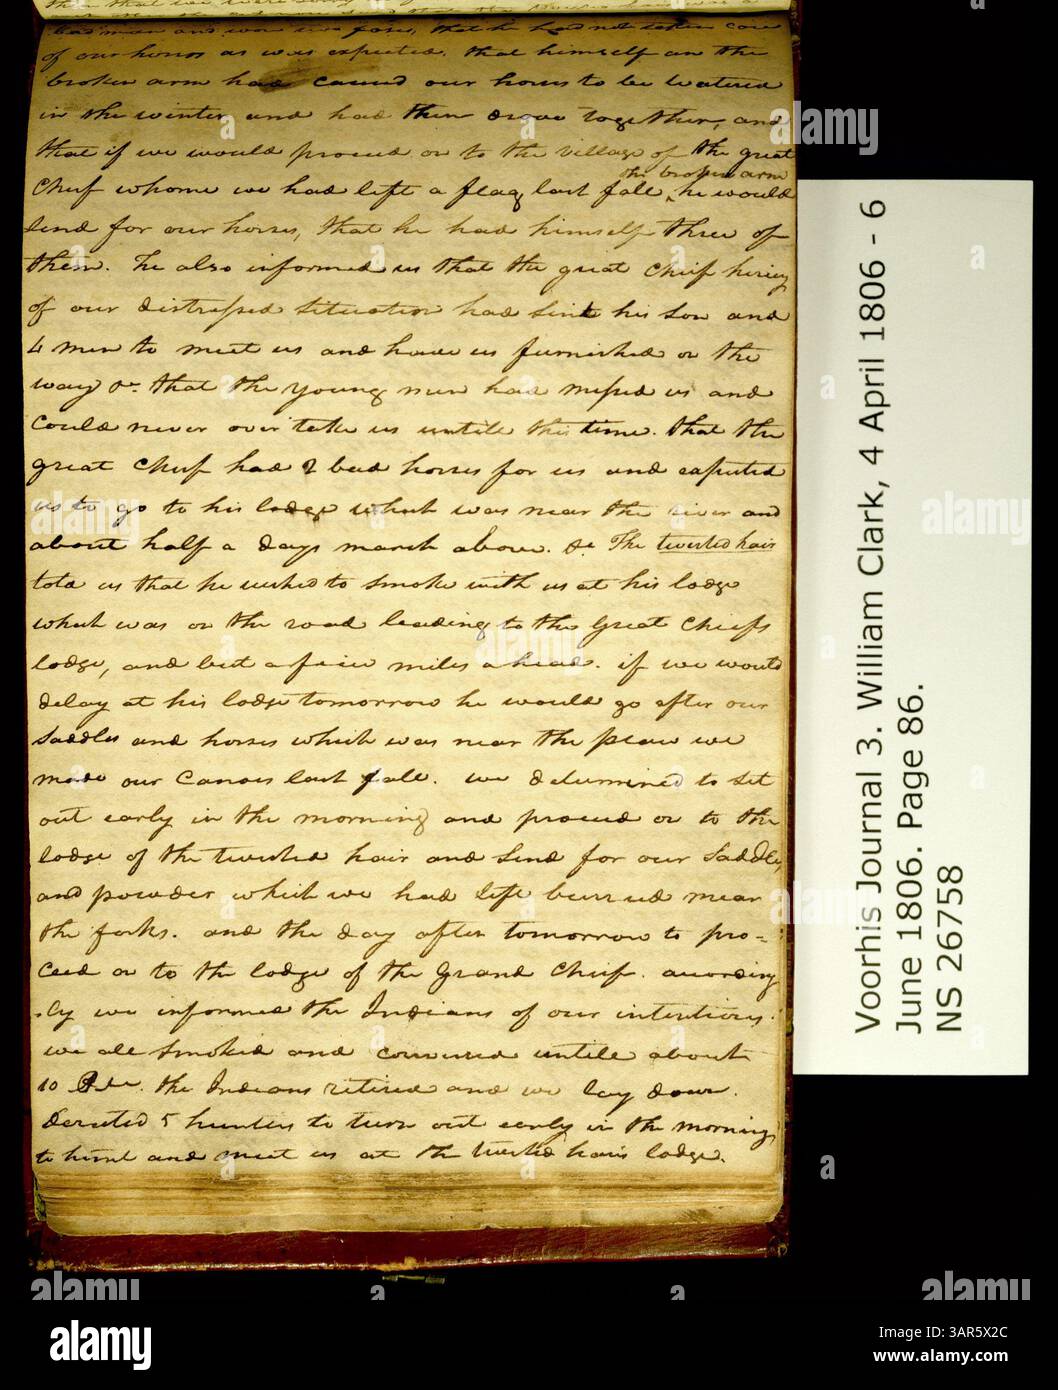 bad man and wore two faces, that he had not taken care
of our horses as was expected. that himself an the
broken arm had caused our horses to be Watered
in the winter and had them drove together, and
that if we would proceed on to the village of the great
the broken arm
Chief whome we had left a flag last fall, he would
send for our horses, that he had himself three of
them. he also informed us that the great Chief hereing
of our distressed situation had sent his son and
4 men to meet us and have us furnished on the
way &c. that the young men had missed us and
could never over take us untill this time. that the
great Chief had 2 bad horses for us and expected
us to go to his lodge which was near the river and
about half a days march above. &c The twisted hair
told us that he wished to smoke with us at his lodge
which was on the road leading to the Great Chiefs
lodge, and but a fiew miles ahead. if we would
delay at his lodge tomorrow he would go after our
Saddles and horses which was near the place we
made our Canoes last fall. we determined to set
out early in the morning and proceed on to the
lodge of the twisted hair and send for our Saddles,
and powder which we had left burried near
the forks. and the day after tomorrow to pro=
ceed on to the lodge of the Grand Chief. according
-ly we informed the Indians of our intentions.
we all smoked and conversed untill about
10 P.M. the Indians retired and we lay down.
Derected 5 hunters to turn out early in the morning
to hunt and meet us at the twisted hairs lodge.
Voorhis Journal 3. William Clark, 4 April 1806 - 6
June 1806. Page 86.
NS 26758
alamy
a
Image ID: 3AR5X2C
www.alamy.com